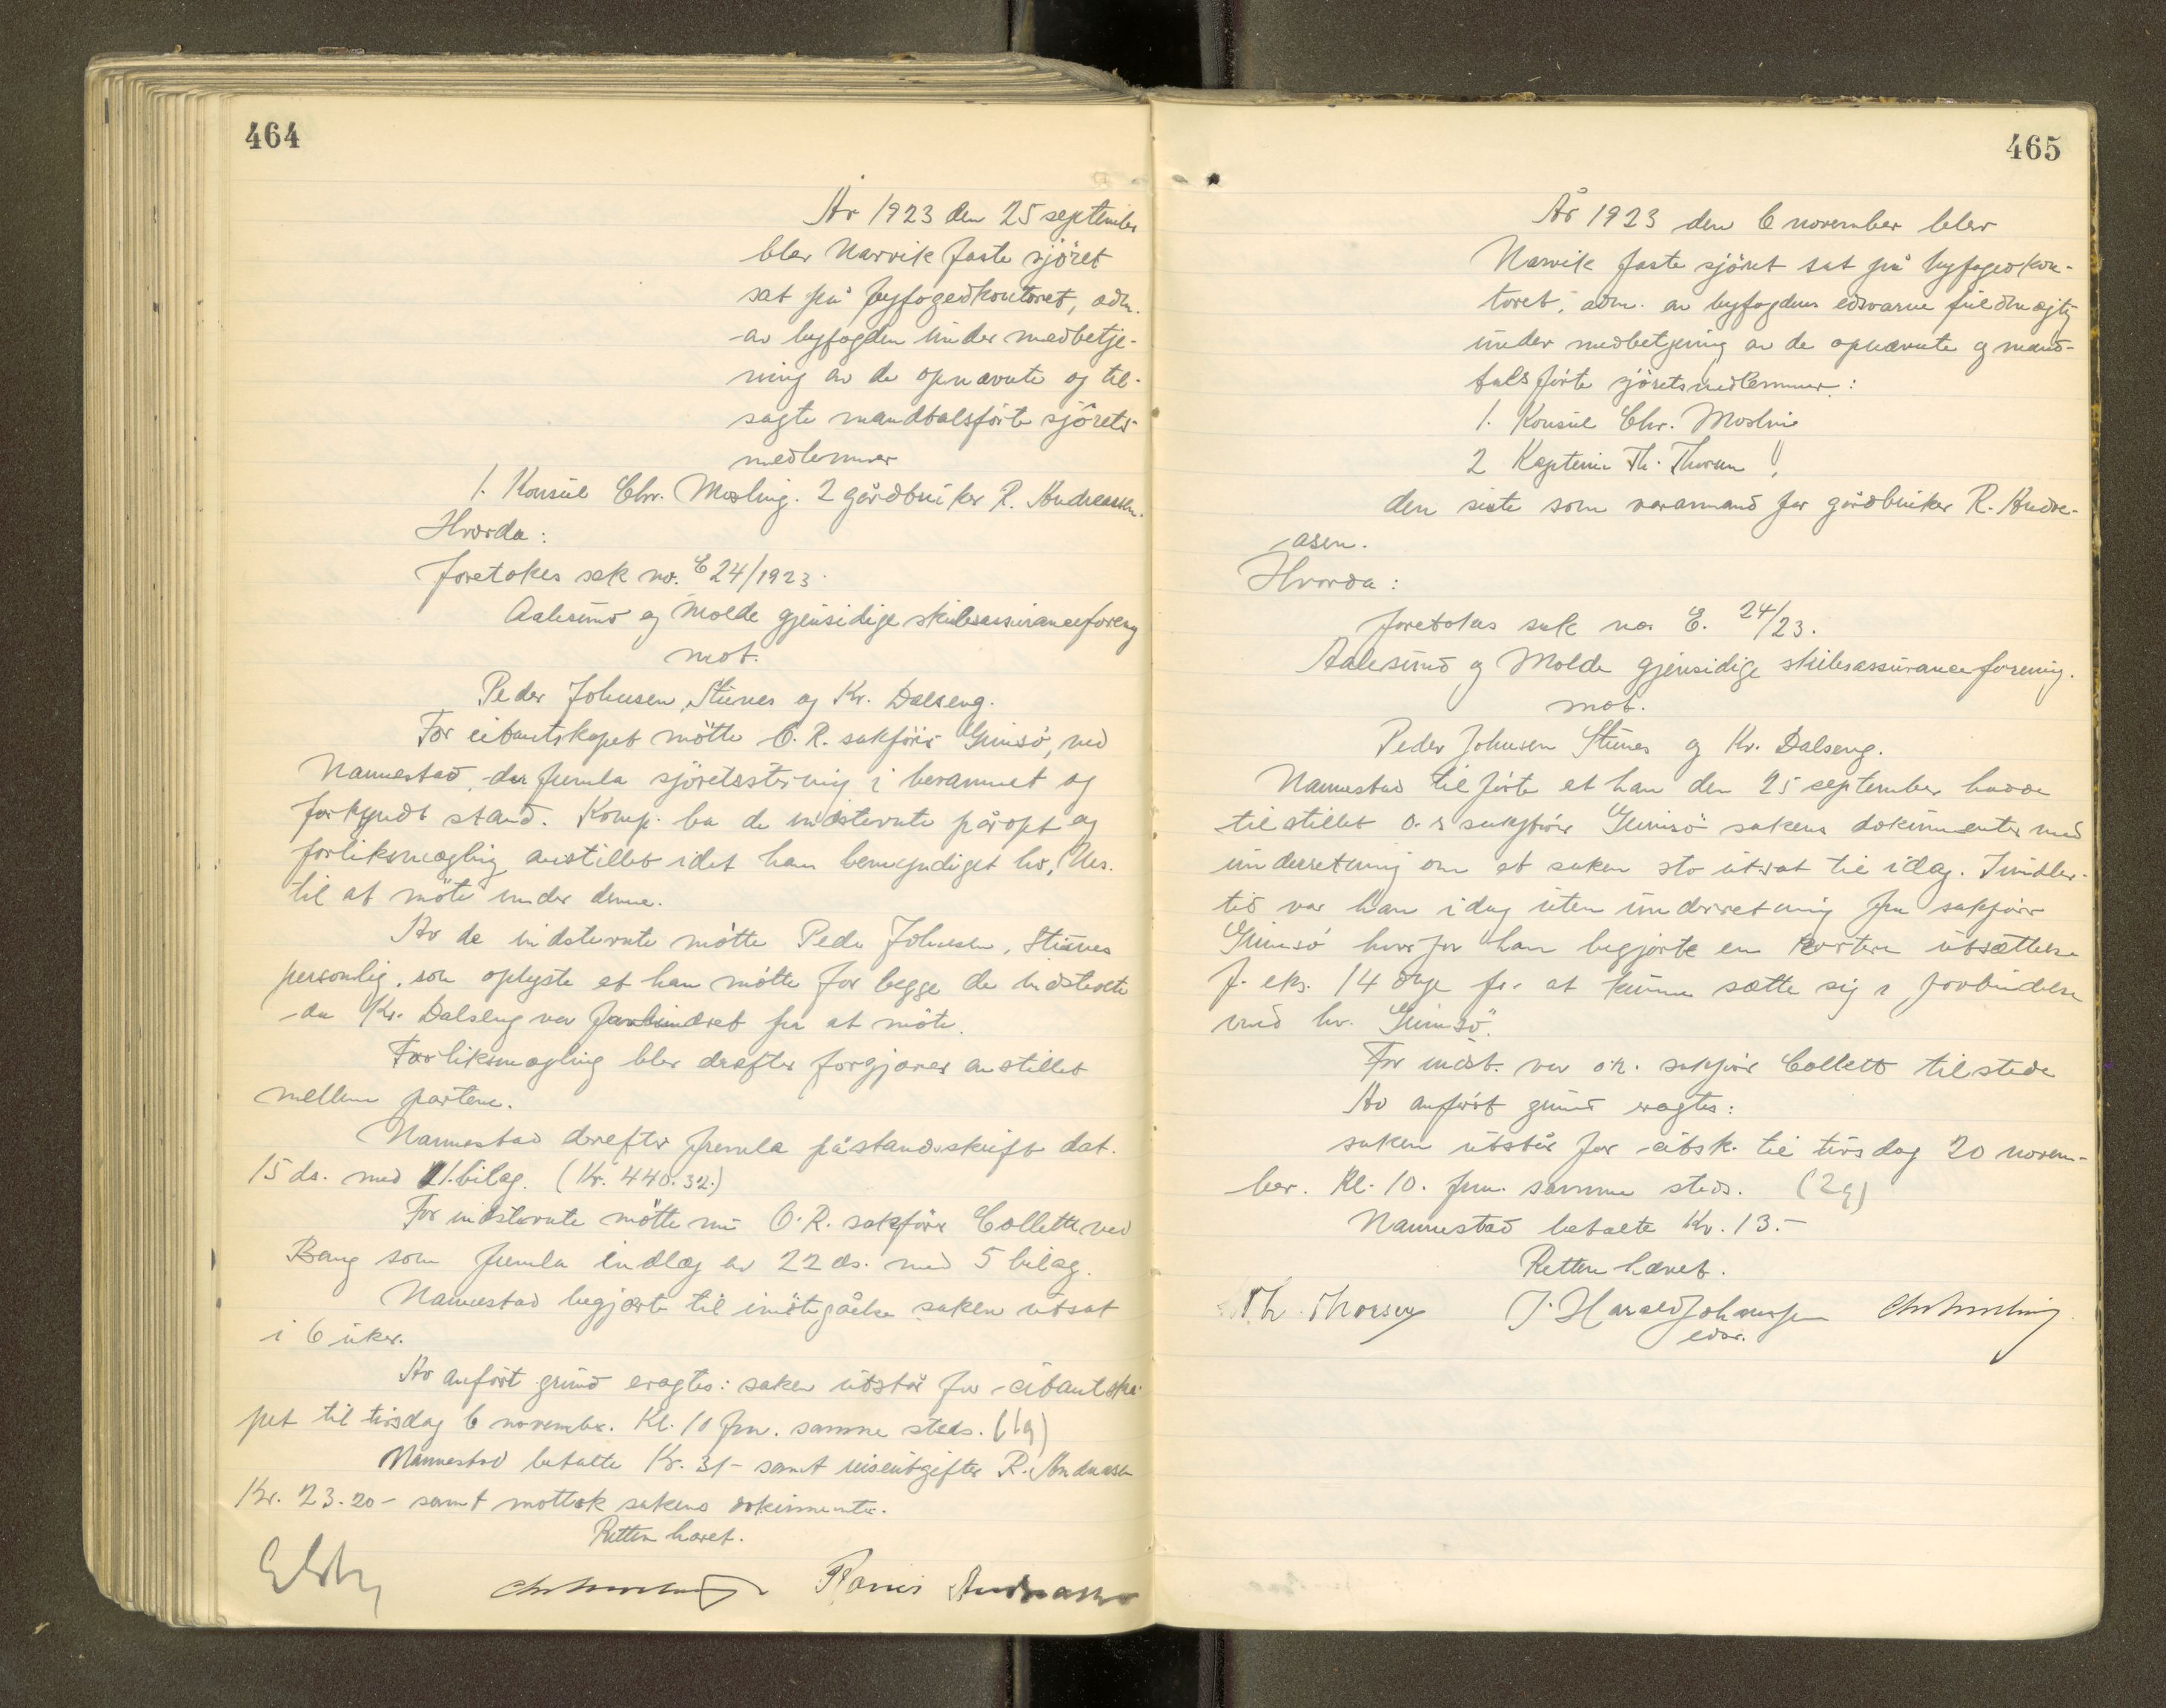 464
År 1923 den 25 september
blev Narvik faste sjöret
sat på byfogedkontoret, adm.
av byfogden under medbetje-
ning av de opnævnte og til-
sagte mandtalsförte sjörets-
medlemmer
1. Konsul Chr. Mosling. 2 gårdbruker R. Andreassen.
Hvorda:
foretokes sak no. E 24/1923.
Aalesund og Molde gjensidige skibsassuranceforeng
mot.
Peder Johnsen, Stunes og Kr. Dalseng.
For citantskapet mötte O.R. sakförer Grimsö, ved
Nannestad, der fremla sjöretsstevning i berammet og
forkyndt stand. Komp. ba de indstevnte påropt og
forliksmægling anstillet idet han bemyndiget hr.
til at möte under denne.
Av de indstevnte mötte Peder Johnsen, Stunes
personlig, som oplyste at han mötte for begge de indstevnte
da Kr. Dalseng var forhindret fra at möte.
Forliksmægling blev derefter forgjæves anstillet
mellem partene.
Nannestad derefter fremla påstandsskrift dat.
15 ds. med 21. bilag. (Kr. 440.32.)
For indstevnte mötte nu O.R. sakförer Collett ved
Bang som fremla indlæg av 22 ds. med 5 bilag.
Nannestad begjærte til imötegåelse saken utsat
i 6 uker.
Av anfört grund eragtes: saken utstår for citantska-
pet til tirsdag 6 november. Kl. 10 fm. samme steds. (1g)
Nannestad betalte Kr. 31- samt reiseutgifter R. Andreasen
Kr. 23.20- samt mottok sakens dokumenter.
Retten hævet.
Chr Mosling Andreassen
465
År 1923 den 6 november blev
Narvik faste sjöret sat på byfogedkon-
toret, adm. av byfogdens edsvorne fuldmægtig
under medbetjening av de opnævnte og mand-
talsförte sjöretsmedlemmer:
1. Konsul Chr. Mosling
2 Kaptein Th. Thorsen,
den siste som varamand for gårdbruker R. Andre-
asen.
Hvorda:
foretokes sak no. E. 24/23.
Aalesund og Molde gjensidige skibsassuranceforening.
mot.
Peder Johnsen Stunes og Kr. Dalseng.
Nannestad tilförte at han den 25 september hadde
tilstillet o.r sakförer Grimsö sakens dokumenter med
underretning om at saken sto utsat til idag. Imidler-
tid var han idag uten underretning fra sakförer
Grimsö hvorfor han begjærte en kortere utsættelse
f. eks. 14 dage for at kunne sætte sig i forbindelse
med hr. Grimsö.
For indst. var o.r. sakförer Collett tilstede
Av anfört grund eragtes:
saken utstår for citsk. til tirsdag 20 novem-
ber. Kl. 10. fm. samme steds. (2g)
Nannestad betalte Kr. 13.-
Retten hævet.
Th. Thorsen J. Harald Johannessen Chr Mosling
edsv.